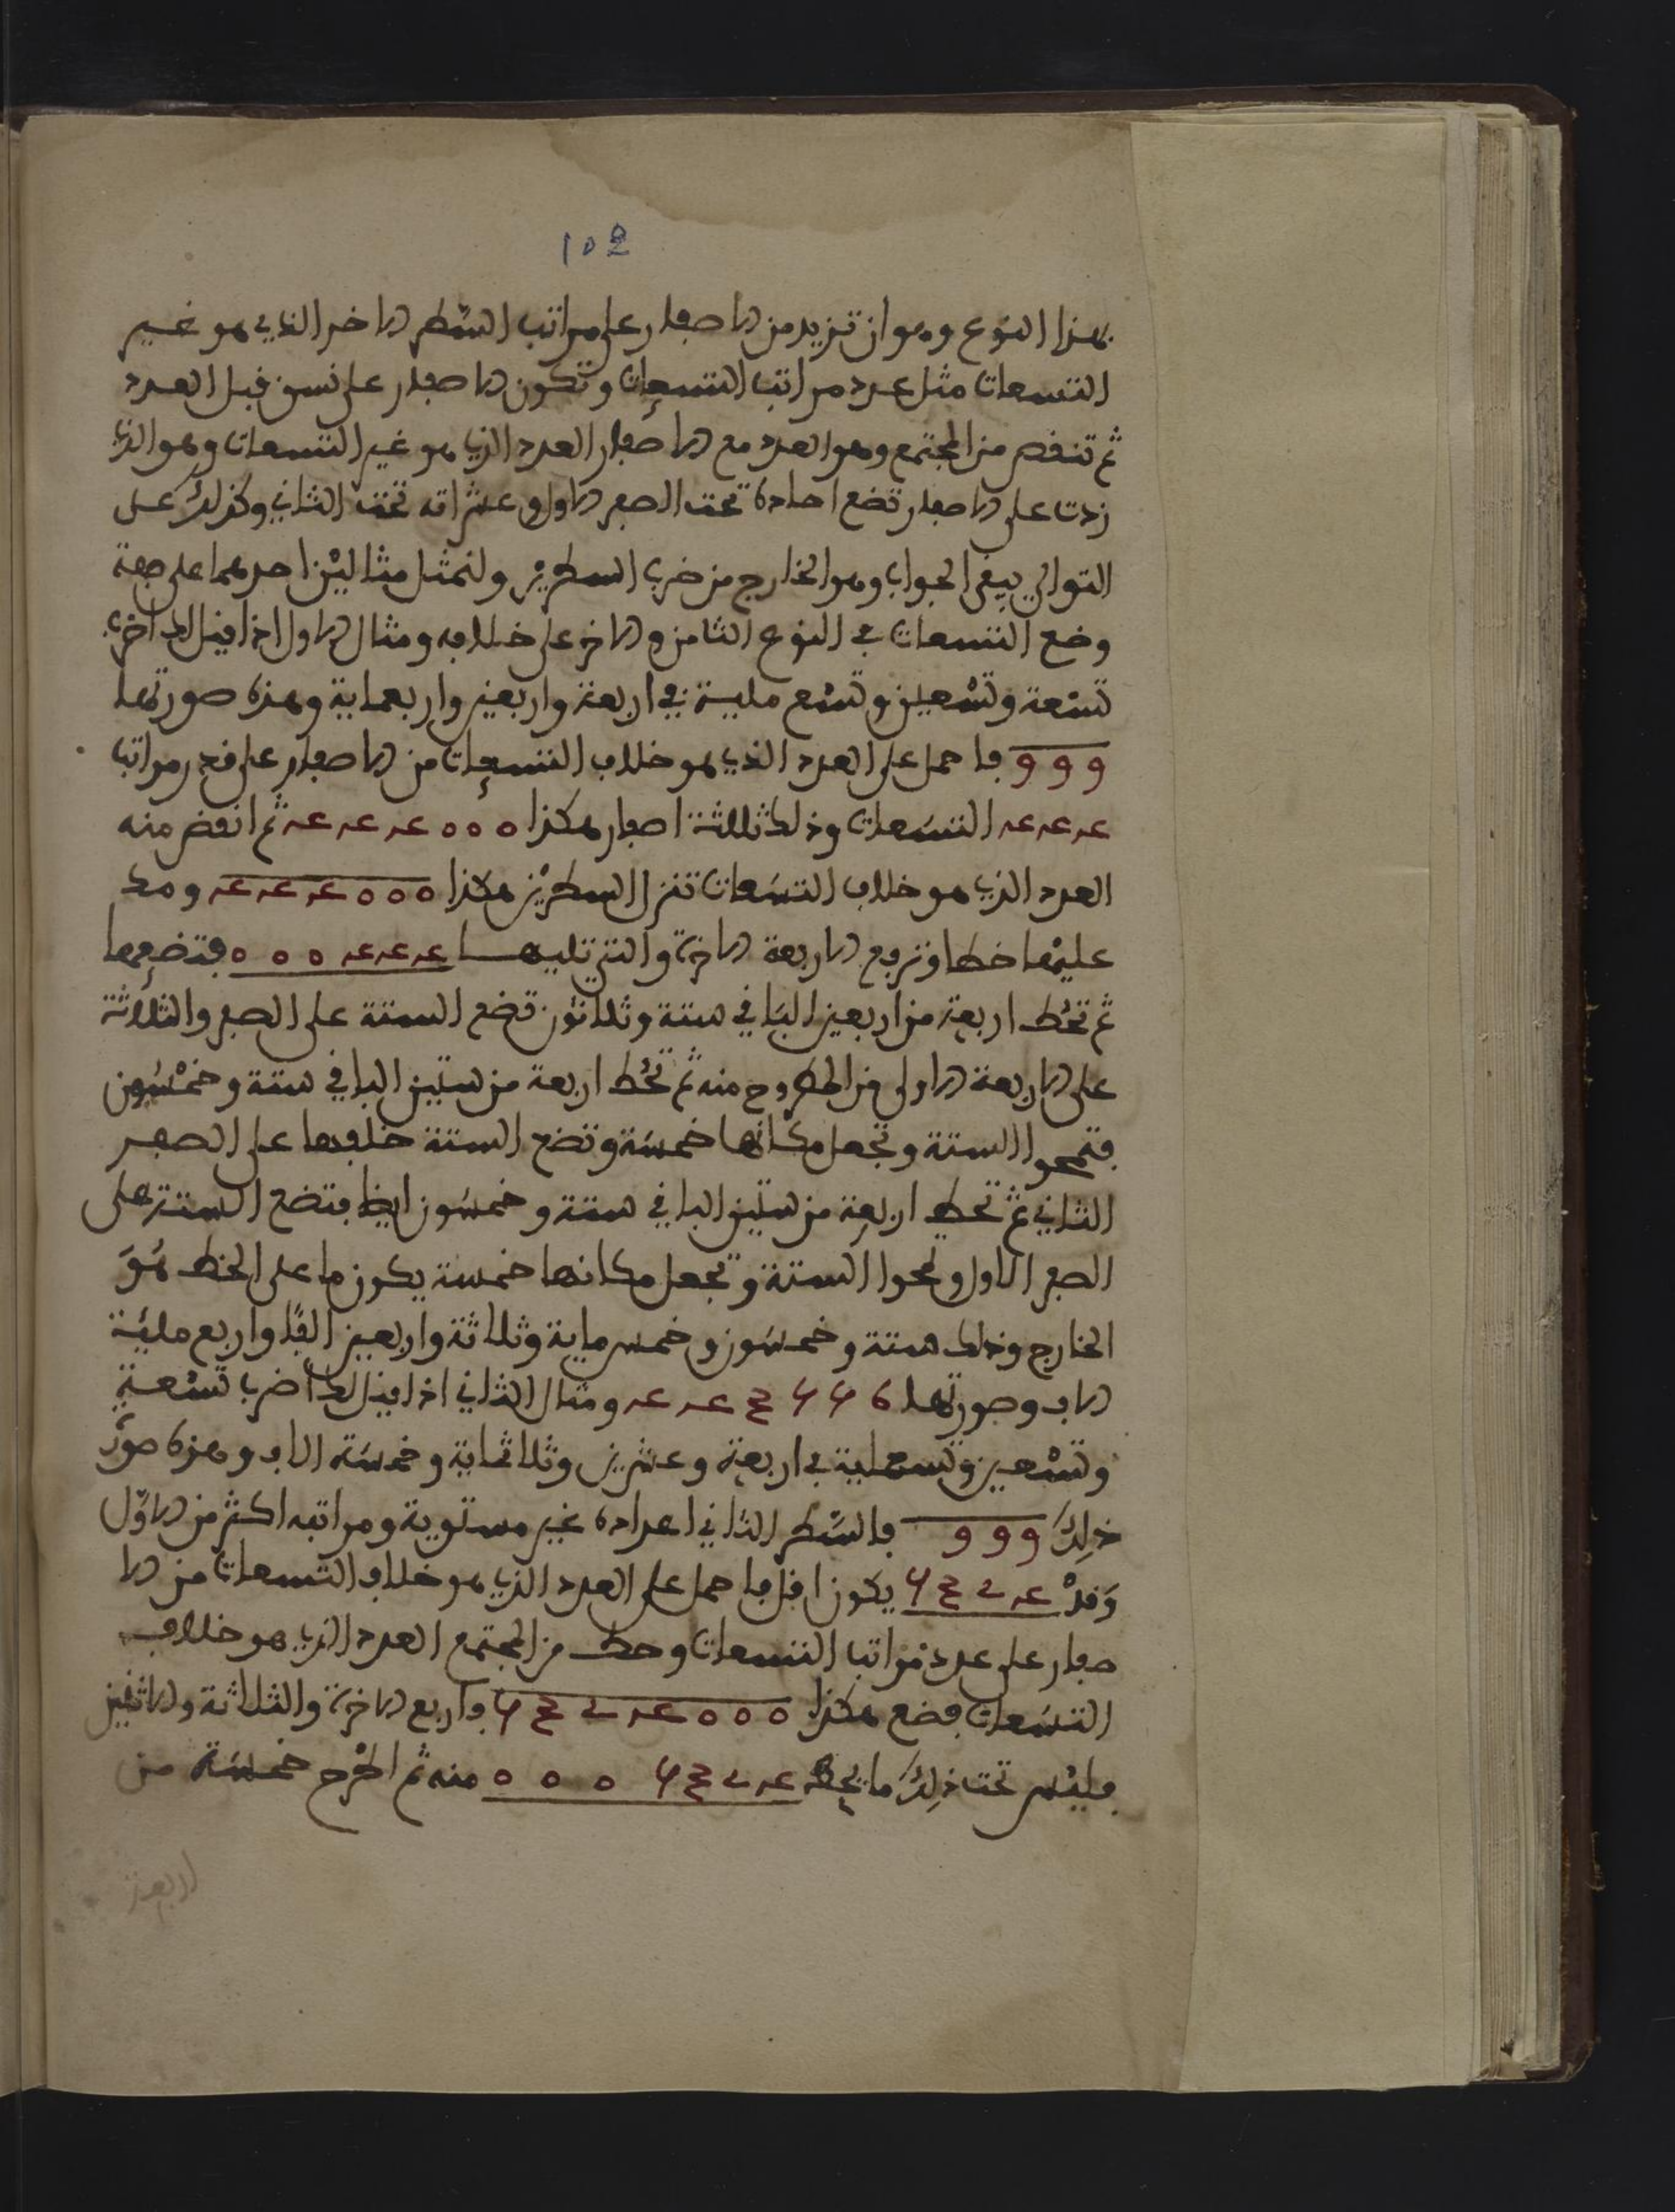 102
بهذا النوع وهو ان تزيد من الاصفار على مراتب السطر الاخر الذي هو غير
التسعات مثل عدد مراتب التسعات وتكون الاصفار على نسق قبل العدد
ثم تنقص من المجتمع وهو العدد مع الاصفار العدد الذي هو غير التسعات وهو الذي
زدت على الاصفار تضع احاده تحت الصفر الاول وعشراته تحت الثاني وكذلك على
التوالي يبقى الجواب وهو الخارج من ضرب السطرين ولنمثل مثالين احدهما على جهة
وضع التسعات في النوع الثامن والاخر على خلافه ومثال الاول اذا قيل لك اضرب
تسعة وتسعين وتسع ماية في اربعة واربعين واربعماية وهذه صورتها
9 9 9 فاحمل على العدد الذي هو خلاف التسعات من الاصفار على قدر مراتب
4 4 4 التسعات وذلك ثلاثة اصفار هكذا 0 0 0 4 4 4 ثم انقص منه
العدد الذي هو خلاف التسعات تنزل السطرين هكذا 0 0 0 4 4 4 ومد
عليها خطا وترفع الاربعة الاخرة والتي تليها 4 4 4 0 0 0 فتضعها
ثم تحط اربعة من اربعين الباقي ستة وثلاثون تضع الستة على الصفر والثلاثة
على الاربعة الاولى من المطروح منه ثم تحط اربعة من ستين الباقي ستة وخمسون
فتمحوا الستة وتجعل مكانها خمسة وتضع الستة خلفها على الصفر
الثاني ثم تحط اربعة من ستين الباقي ستة وخمسون ايضا فتضع الستة على
الصفر الاول وتمحوا الستة وتجعل مكانها خمسة يكون ما على الخط هو
الخارج وذلك ستة وخمسون وخمس ماية وثلاثة واربعين الفا واربع مائة
الاف وصورتها 6 5 5 3 4 4 ومثال الثاني اذا قيل لك اضرب تسعة
وتسعين وتسعماية في اربعة وعشرين وثلاثماية وخمسة الاف وهذه صور
ذلك 9 9 9 فالسطر الثاني اعداده غير مستوية ومراتبه اكثر من الاول
وقد 4 2 3 5 يكون اقل فاحمل على العدد الذي هو خلاف التسعات من الا
صفار على عدد مراتب التسعات وحط من المجتمع العدد الذي هو خلاف
التسعات فضع هكذا 0 0 0 4 2 3 5 واربع الاخرة والثلاثة والاثنين
فليس تحت ذلك ما يحط 4 2 3 5 0 0 0 منه ثم اطرح خمسة من
اربعة